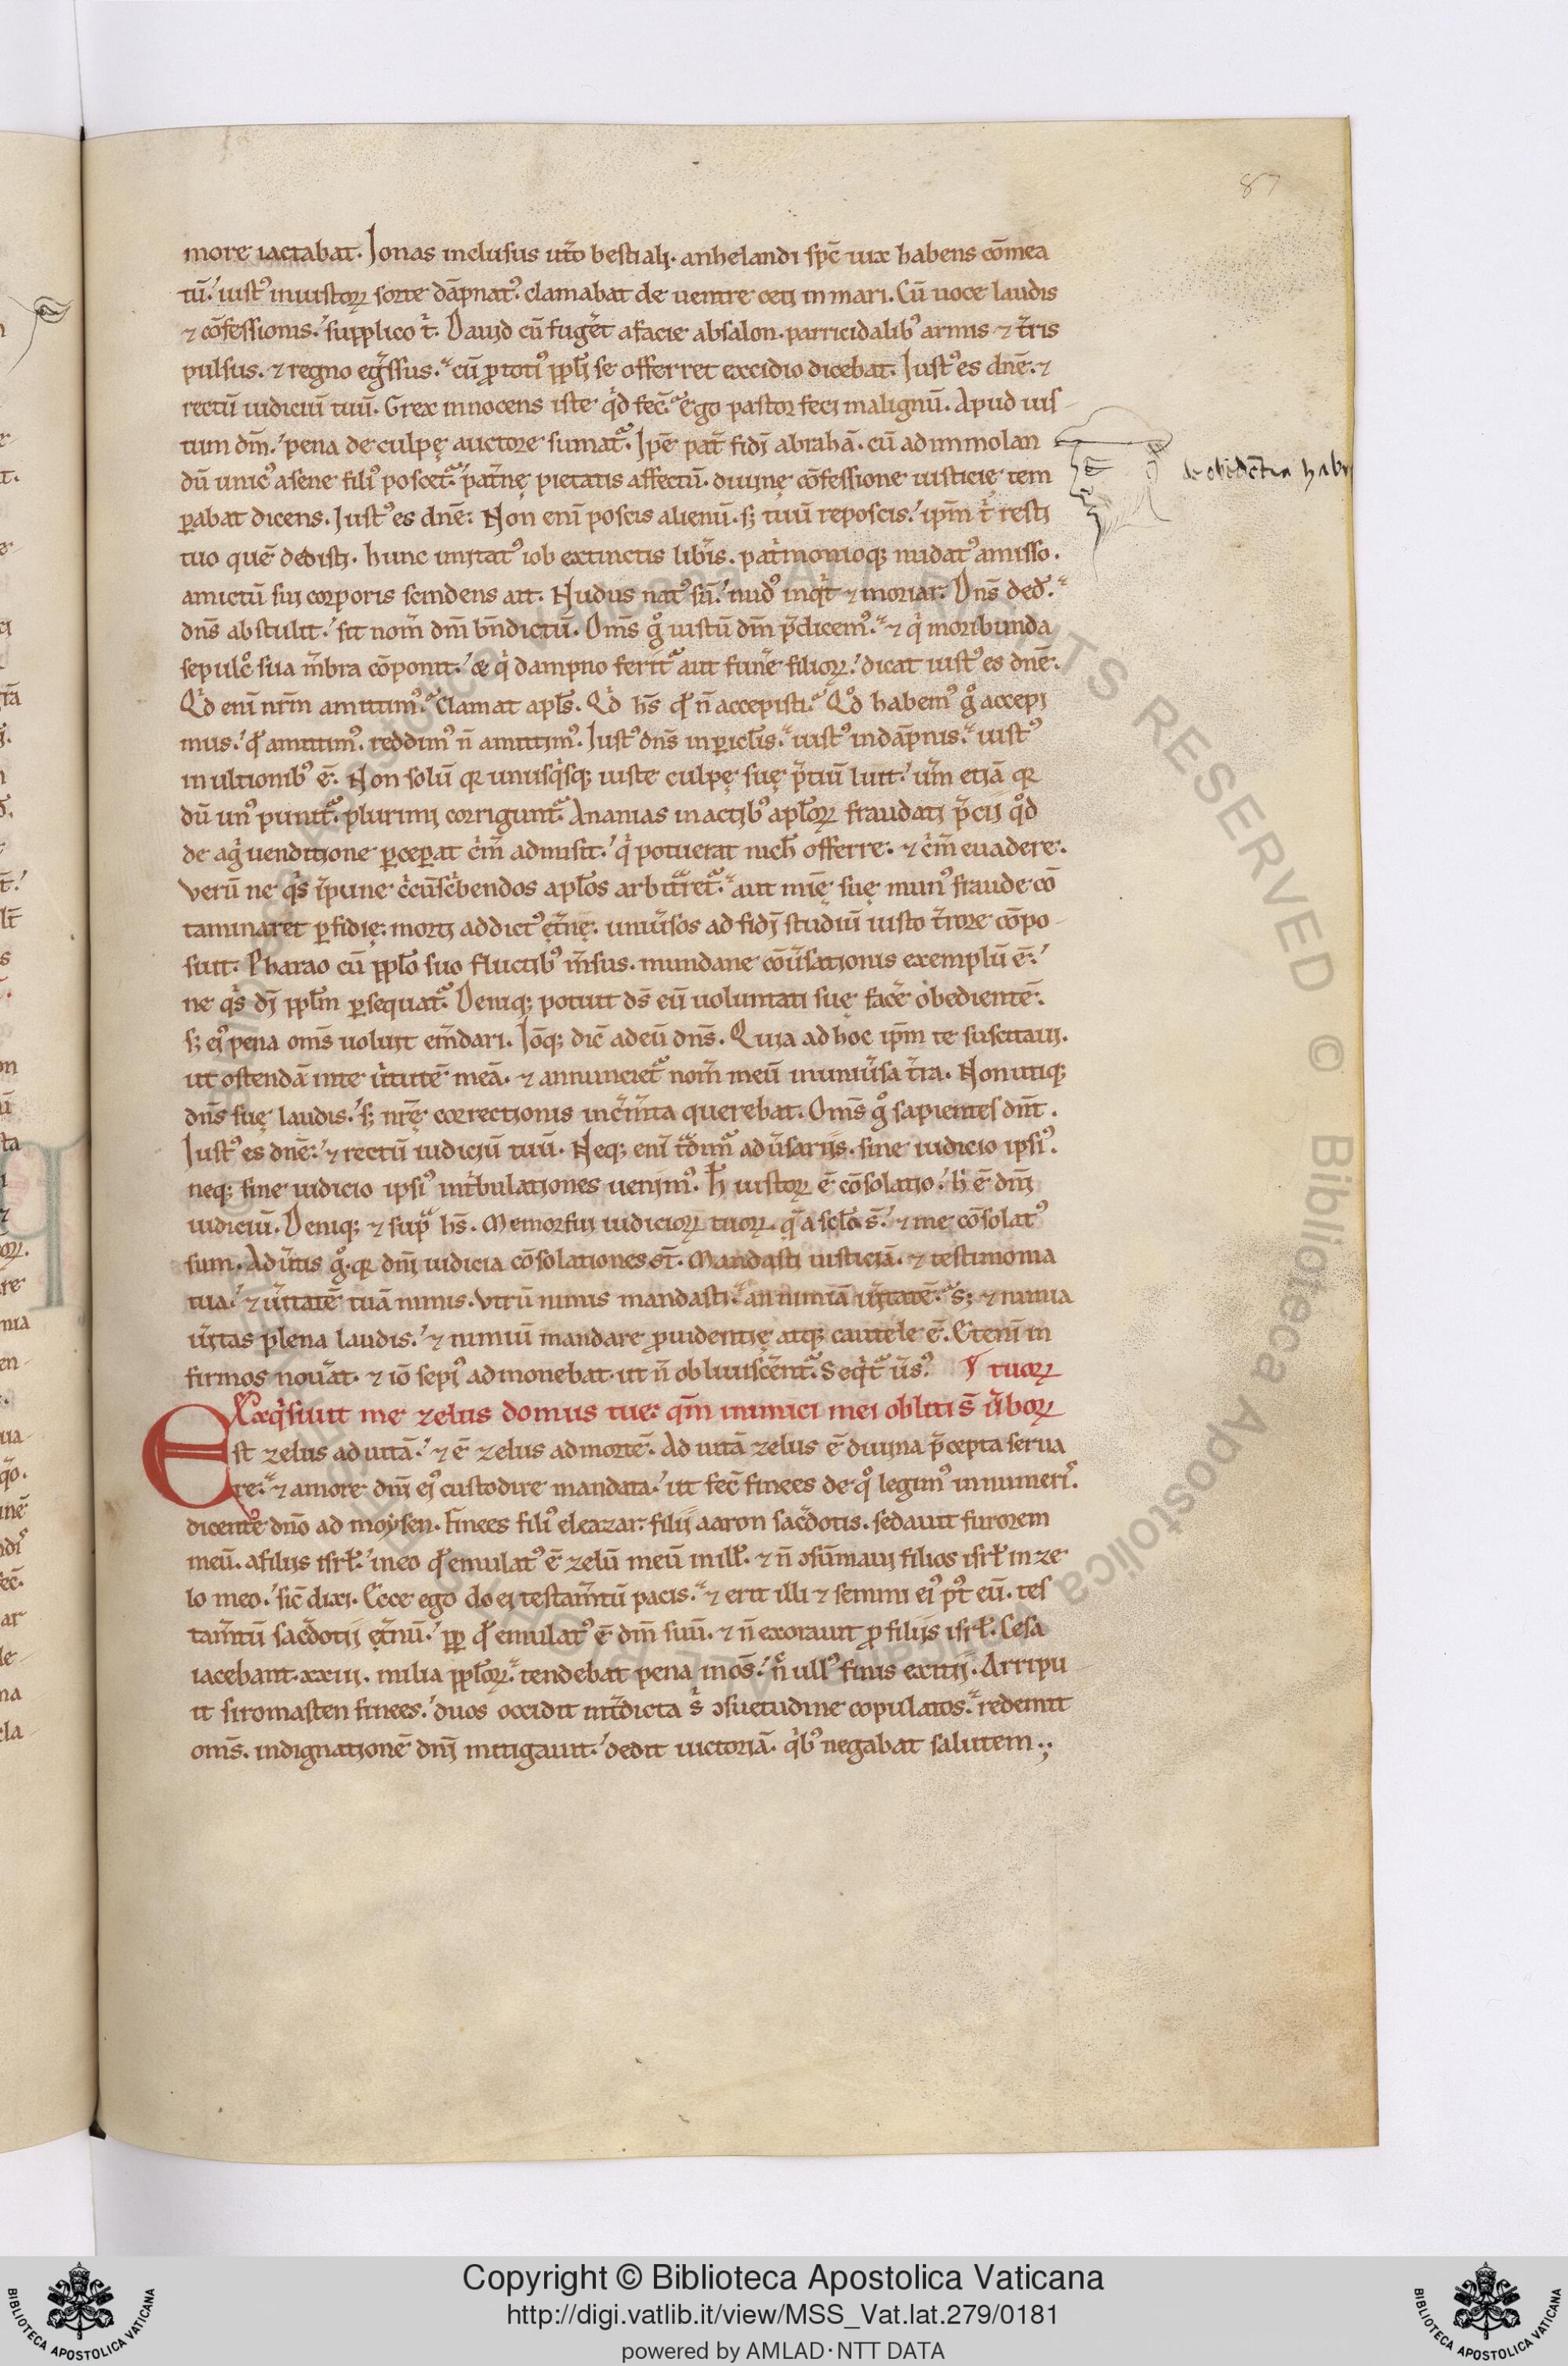 87
more iactabat. Jonas inclusus ut͛o bestiali. anhelandi spē uix habens cōmea
tū. iustꝰ iniustoꝝ sorte dāpnatꝰ. clamabat de uentre ceti in mari. Cū uoce laudis
⁊ cōfessionis. supplico t͛. Dauid cū fuḡet a facie absalon. parricidalibꝰ armis ⁊ t͛ris
pulsus. ⁊ regno eg͛ssus. cū ꝓ totiꝰ ppl̄i se offerret excidio dicebat. Justꝰ es dnē. ⁊
rectū iudiciū tuū. Grex innocens iste qͥd fec̄. ego pastor feci malignū. Apud ius-
tum dm̄. pena de culpę auctore sumat᷑. Ipē pat͛ fidi abrahā. cū ad immolan
dū unicꝰ a sene filiꝰ poscet᷑. pat͛nę pietatis affectū. diuinę cōfessione iusticie tem
ꝑabat dicens. Justꝰ es dnē. Non enī poscis alienū. sꝫ tuū reposcis. ip̄m t͛ resti
tuo quē dedisti. hunc imitatꝰ iob extinctis lib͛is. pat͛monioqꝫ nudatꝰ amisso.
amictū sui corporis scindens ait. Nudus natꝰ sū. nudꝰ inqͥt ⁊ moriar. Dn̄s ded͛.
dn̄s abstulit. sit nom̄ dm̄ bn̄dictū. Om̄s gͦ iustū dm̄ p͛dicemꝰ. ⁊ qͥ moribunda
sepulc͛ sua m̄bra cōponit. & qͥ dampno ferit᷑ aut fun͛e filioꝝ. dicat iustꝰ es dnē.
Qͥd enī nr̄m amittimꝰ. Clamat apl̄s. Qͥd hs̄ qd̄ n̄ accepisti. Qͦd habemꝰ gͦ accepi
mus. qd̄ amittimꝰ. reddimꝰ n̄ amittimꝰ. Justꝰ dn̄s in ꝑicl̄is. iustꝰ in dāpnis. iustꝰ
in ultionibꝰ ē. Non solū qꝛ unusqͥsqꝫ iuste culpę suę p͛tiū luit. uͬm etiā qꝛ
dū unꝰ punit᷑. plurimi corrigunt᷑. Ananias in actibꝰ apl̄oꝝ fraudati p͛cii qͦd
de agͥ uenditione ꝑceꝑat cͥm̄ admisit. qͥ potuerat nich̄ offerre. ⁊ cͥm̄ euadere.
Verū ne qͥs īpune cͥcūscͥbendos apl̄os arbit͛ret᷑. aut mīę suę munꝰ fraude cō
taminaret ꝑfidię. morti addictꝰ ęt͛nę. uniu͛sos ad fidī studiū iusto t͛rore cōpo-
suit. Pharao cū ppl̄o suo fluctibꝰ m͛sus. mundane cōu͛sationis exemplū ē.
ne qͥs dī ppl̄m ꝑsequat᷑. Deniqꝫ potuit ds̄ eū uoluntati suę fac͛e obedientē.
sꝫ eiꝰ pena om̄s uoluit em̄dari. Iōqꝫ dic̄ ad eū dn̄s. Quia ad hoc ip̄m te suscitaui.
ut ostendā in te u͛tutē meā. ⁊ annunciet᷑ nom̄ meū in uniu͛sa t͛ra. Non utiqꝫ
dn̄s suę laudis. sꝫ nr̄ę correctionis inc͛m̄ta querebat. Om̄s gͦ sapientes dn̄t.
Justꝰ es dnē. ⁊ rectū iudiciū tuū. Neqꝫ enī t͛dim᷑ adu͛sariis. sine iudicio ipsiꝰ.
neqꝫ sine iudicio ipsiꝰ in t͛bulationes uenimꝰ. h̄ iustoꝝ ē cōsolatio. h̄ ē dn̄i
iudiciū. Deniqꝫ ⁊ sup͛ hs̄. Memor fui iudicioꝝ tuoꝝ. q͛ a scl̄o s̄. ⁊ me cōsolatꝰ
sum. Aduͬtis gͦ. qꝛ dn̄i iudicia cōsolationes st̄. Mandasti iusticiā. ⁊ testimonia
tua. ⁊ u͛itatē tuā nimis. Vtrū nimis mandasti. an nimiā u͛itatē. sꝫ ⁊ nimia
u͛itas plena laudis. ⁊ nimiū mandare ꝓuidentię atqꝫ cautele ē. Etenī in
firmos nou͛at. ⁊ iō sepiꝰ admonebat. ut n̄ obliuisc͛ent᷑. Seqͥt᷑ u͛sꝰ. tuoꝝ
Exqͥsiuit me zelus domus tue. qm̄ inimici mei obliti s̄ u͛boꝝ
Est zelus ad uitā. ⁊ ē zelus ad mortē. Ad uitā zelus ē diuina p͛cepta serua
re. ⁊ amore dn̄i eiꝰ custodire mandata. ut fec̄ finees de qͦ legimꝰ in numeriꝰ.
dicente dn̄o ad moysen. Finees filiꝰ eleazar. filii aaron sac͛dotis. sedauit furorem
meū. a filiis isrl̄. in eo qd̄ emulatꝰ ē zelū meū in ill̄. ⁊ n̄ ↄsūmaui filios isrl̄ in ze
lo meo. sic̄ dixi. Ecce ego do ei testam̄tū pacis. ⁊ erit illi ⁊ semini eiꝰ pͦt eū. tes
tam̄tū sac͛dotii ęt͛nū. ꝓp qd̄ emulatꝰ ē dm̄ suū. ⁊ n̄ exorauit ꝓ filiis isrl̄. Cesa
iacebant. xxiii. milia ppl̄oꝝ. tendebat pena in oms̄. n͛ ullꝰ finis exitii. Arripu-
it siromasten finees. duos occidit int͛dicta s͛ ↄsuetudine copulatos. redemit
om̄s. indignationē dn̄i mitigauit. dedit uictoriā. qͥbꝰ negabat salutem.
de obidēntia habr
Copyright © Biblioteca Apostolica Vaticana
http://digi.vatlib.it/view/MSS_Vat.lat.279/0181
powered by AMLAD·NTT DATA
BIBLIOTECA APOSTOLICA VATICANA
BIBLIOTECA APOSTOLICA VATICANA